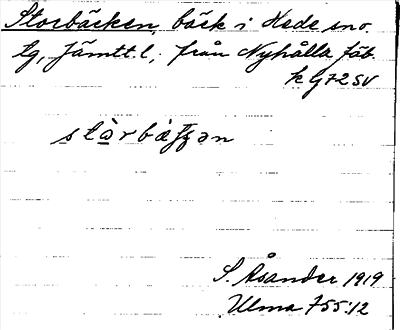 Storbäcken, bäck i Hede sn o.
tg, Jämtl. l., från Nyhålla fäb.
k G 72 SV
S. Åsander 1919
Ulma 755:12